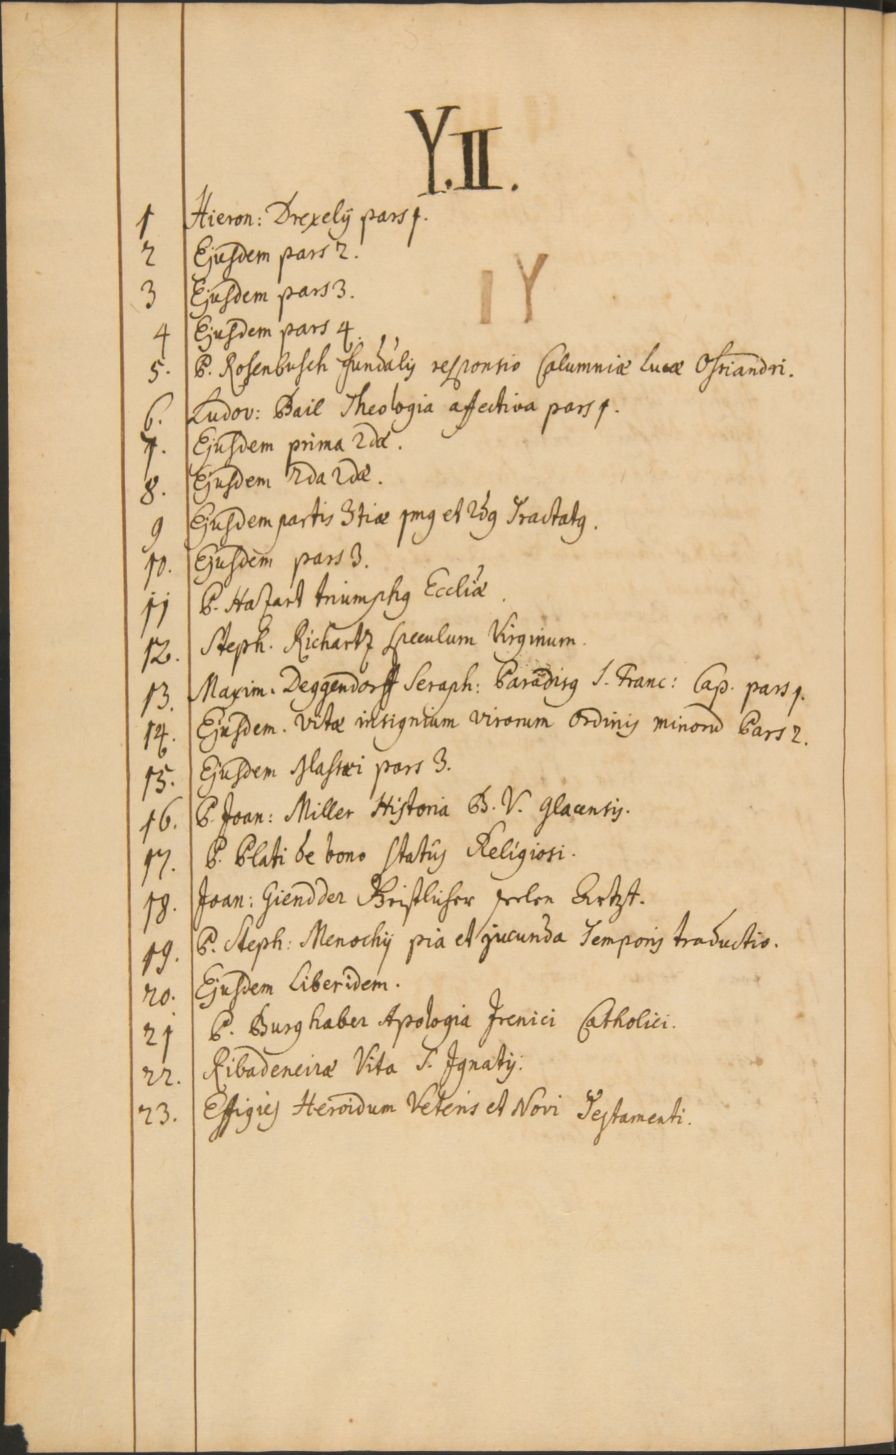 Y.II.
1 Hieron: Drexelÿ pars 1.
2 Ejusdem pars 2.
3 Ejusdem pars 3.
4 Ejusdem pars 4.
5. P. Rosenbusch fundalis responsio Calumniæ Lucæ Osiandri.
6. Ludov: Bail Theologia affectiva pars 1.
7. Ejusdem prima 2dæ.
8. Ejusdem 2da 2dæ.
9 Ejusdem partis 3tiæ pmg et 2dg Tractatg.
10. Ejusdem pars 3.
11 P. Hazart triumphg Eccliæ.
12. Steph. Richartz speculum Virginum.
13. Maxim. Deggendorff Seraph: Paradisg S. Franc: Cap. pars 1.
14. Ejusdem. vitæ insignium virorum ordinis minorū Pars 2.
15. Ejusdem pars 3.
16. P. Joan: Miller Historia B. V. Glacensis.
17. P. Plati de bono statûs Religiosi.
18. Joan: Giendder
19. P. Steph: Menochÿ pia et jucunda Temporis traductio.
20. Ejusdem Liber idem.
21 P. Burghaber Apologia Irenici Catholici.
22. Ribadeneiræ Vita S. Ignatÿ.
23. Effigies Heroidum Veteris et Novi Testamenti.